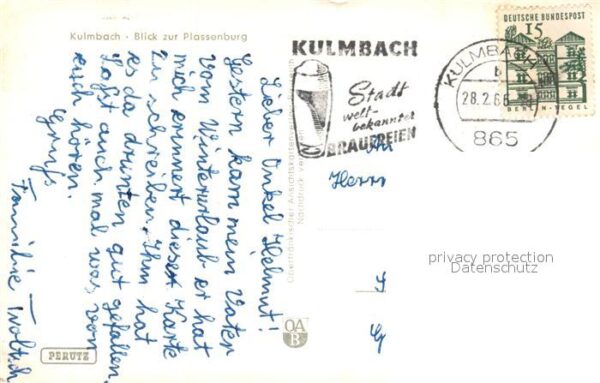 Kulmbach - Blick zur Plassenburg
Lieber Onkel Helmut!
Gestern kam mein Vater
vom Winterurlaub er hat
mich erinnert dieser Karte
zu schreiben. Ihm hat
es da drunten gut gefallen.
Laßt auch mal was von
euch hören.
Gruß
Familie
PERUTZ
Oberfränkischer Ansichtskartenverlag
Nachdruck
OA
B
KULMBACH
Stadt
welt-
bekannter
BRAUEREIEN
KULMBACH
b
28.2.66
865
DEUTSCHE BUNDESPOST
15
BERLIN-TEGEL
An
Herrn
privacy protection
Datenschutz